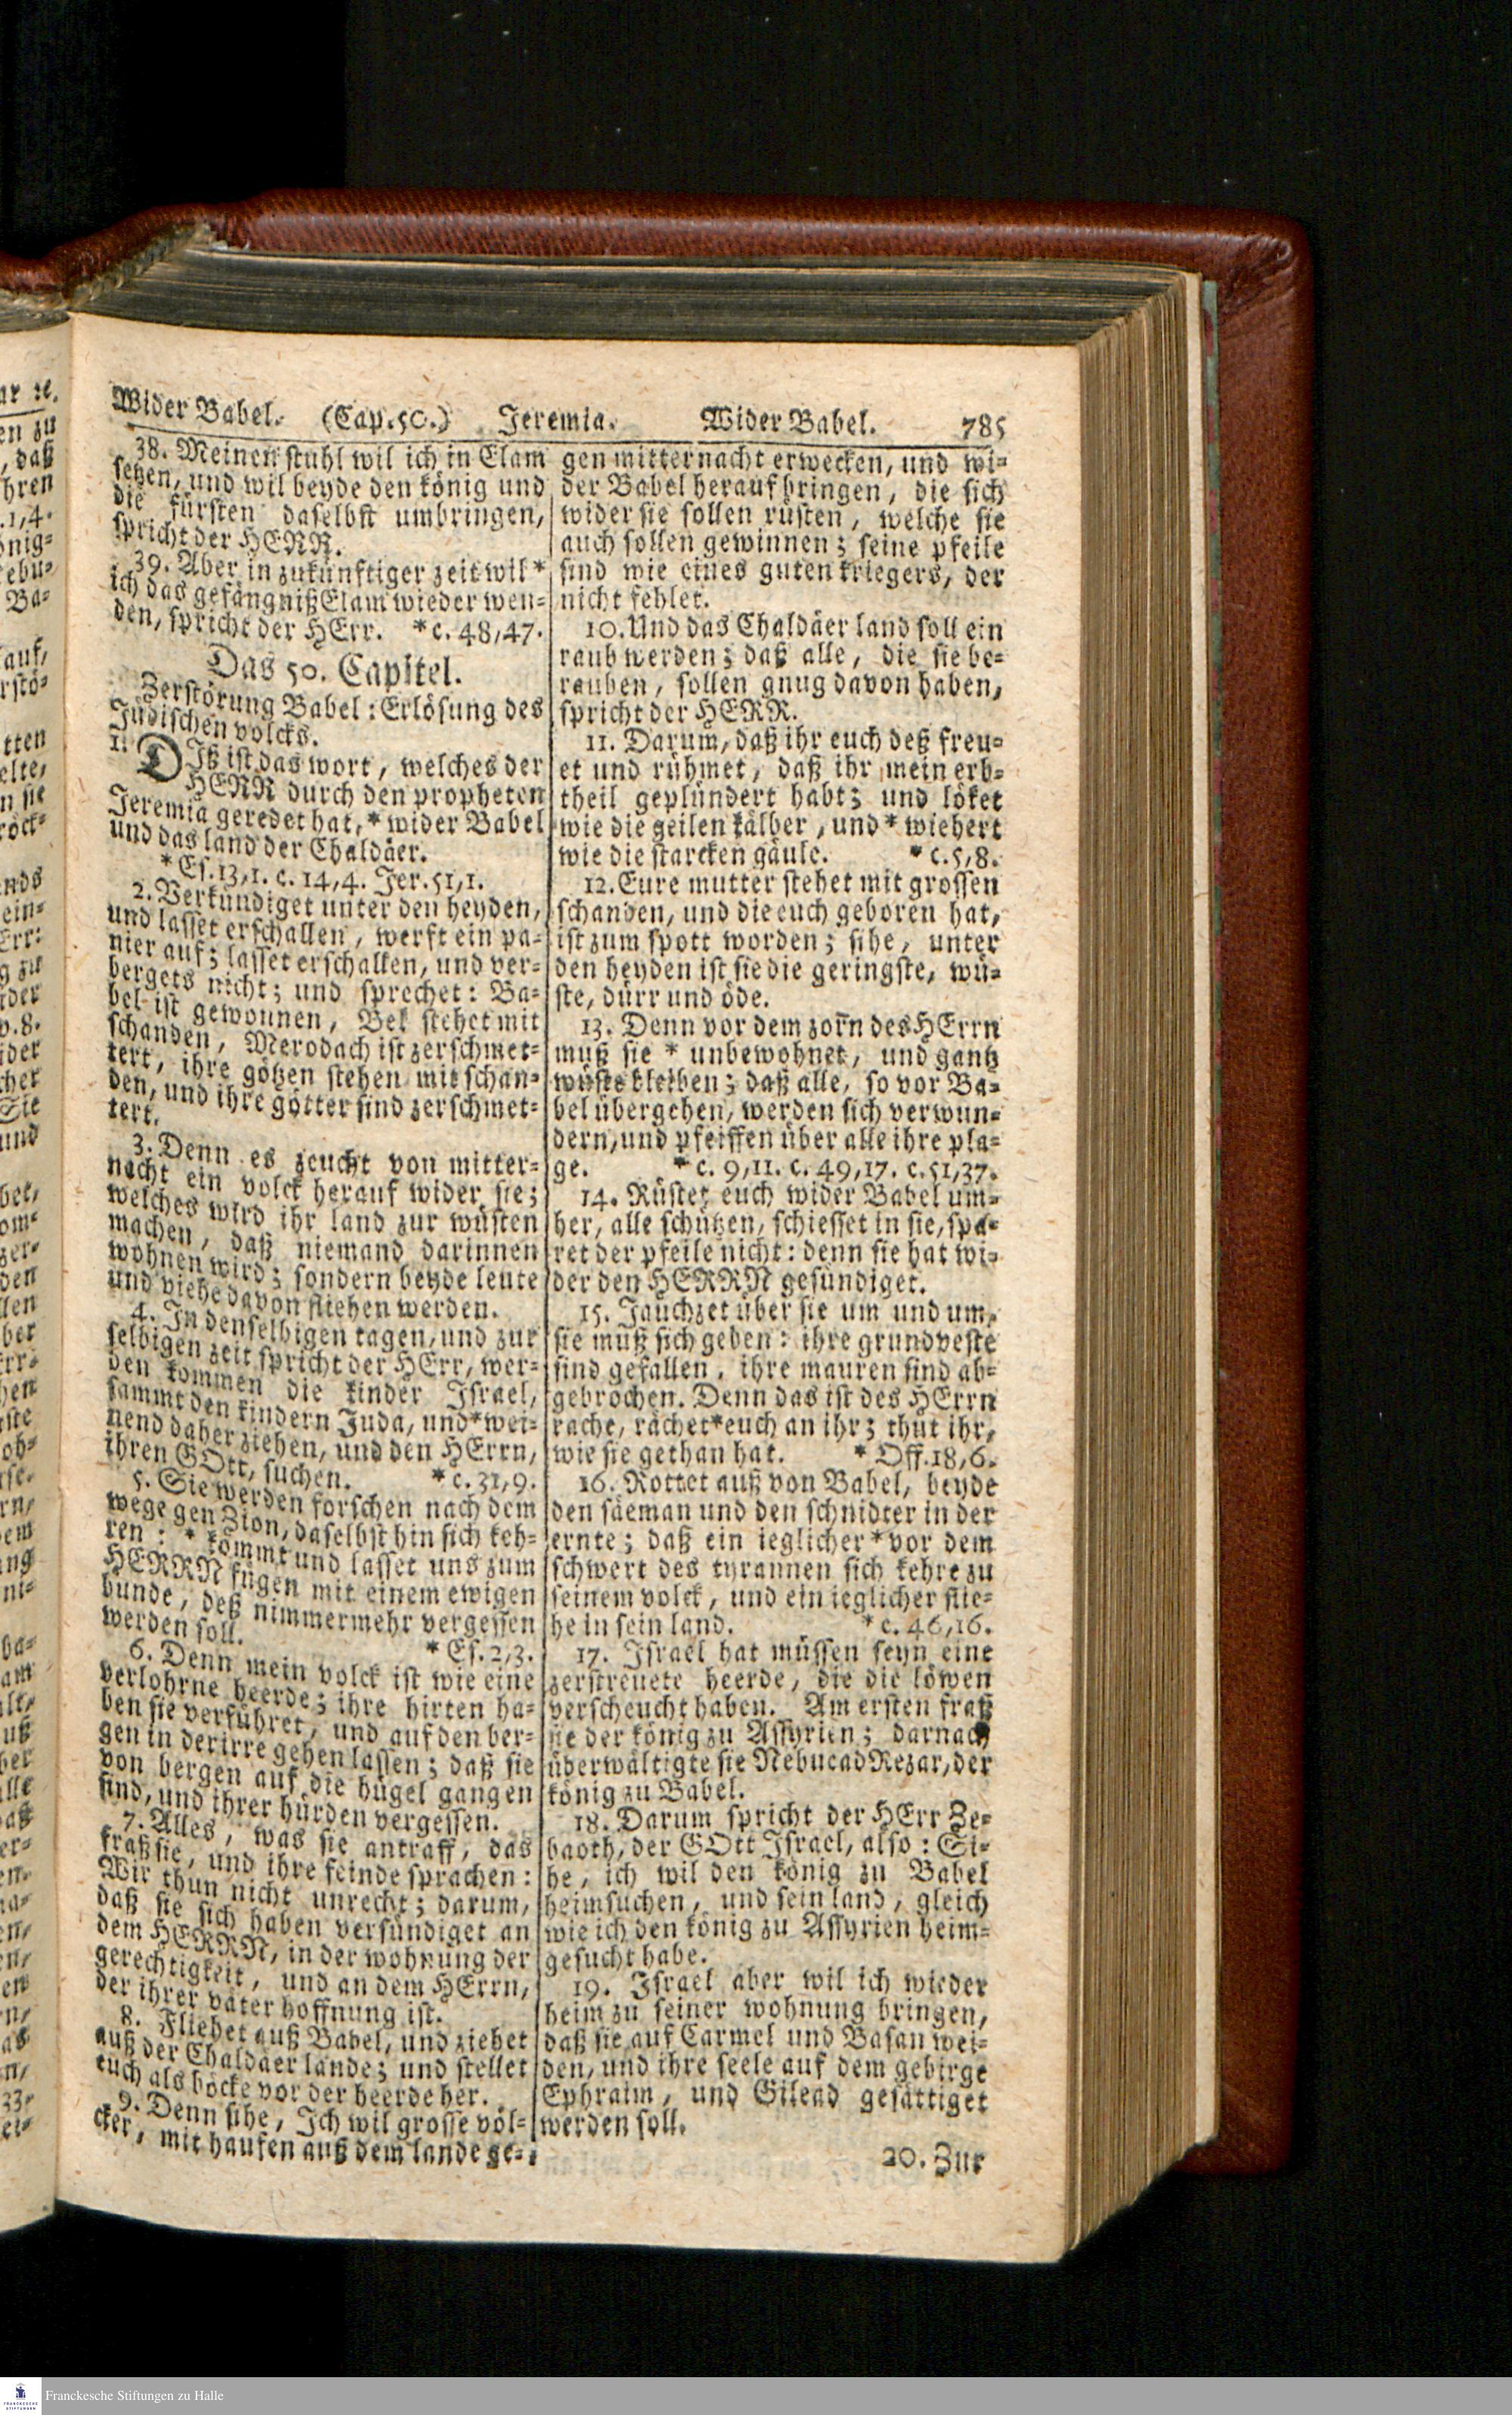 Wider Babel. (Cap.50.) Jeremia. Wider Babel. 785
38. Meinen stuhl wil ich in Elam
setzen, und wil beyde den könig und
die fürsten daselbst umbringen,
spricht der HERR.
39. Aber in zukünftiger zeit wil *
ich das gefängniß Elam wieder wen=
den, spricht der HErr. *c. 48,47.
Das 50. Capitel.
Zerstörung Babel: Erlösung des
Jüdischen volcks.
1. DIß ist das wort, welches der
HERR durch den propheten
Jeremia geredet hat, * wider Babel
und das land der Chaldäer.
*Es. 13,1. c. 14,4. Jer. 51,1.
2. Verkündiget unter den heyden,
und lasset erschallen, werft ein pa=
nier auf; lasset erschallen, und ver=
bergets nicht; und sprechet: Ba=
bel ist gewonnen, Bel stehet mit
schanden, Merodach ist zerschmet=
tert, ihre götzen stehen mit schan=
den, und ihre götter sind zerschmet=
tert.
3. Denn es zeucht von mitter=
nacht ein volck herauf wider sie;
welches wird ihr land zur wüsten
machen, daß niemand darinnen
wohnen wird; sondern beyde leute
und viehe davon fliehen werden.
4. In denselbigen tagen, und zur
selbigen zeit spricht der HErr, wer=
den kommen die kinder Israel,
sammt den kindern Juda, und*wei=
nend daher ziehen, und den HErrn,
ihren GOtt, suchen. *c. 31,9.
5. Sie werden forschen nach dem
wege gen Zion, daselbst hin sich keh=
ren: * kommt und lasset uns zum
HERRN fügen mit einem ewigen
bunde, deß nimmermehr vergessen
werden soll. * Es. 2,3.
6. Denn mein volck ist wie eine
verlohrne heerde; ihre hirten ha=
ben sie verführet, und auf den ber=
gen in der irre gehen lassen; daß sie
von bergen auf die hügel gangen
sind, und ihrer hürden vergessen.
7. Alles, was sie antraff, das
fraß sie, und ihre feinde sprachen:
Wir thun nicht unrecht; darum,
daß sie sich haben versündiget an
dem HERRN, in der wohnung der
gerechtigkeit, und an dem HErrn,
der ihrer väter hoffnung ist.
8. Fliehet auß Babel, und ziehet
auß der Chaldäer lande; und stellet
euch als böcke vor der heerde her.
9. Denn sihe, Ich wil grosse völ=
cker, mit haufen auß dem lande ge=
gen mitternacht erwecken, und wi=
der Babel herauf bringen, die sich
wider sie sollen rüsten, welche sie
auch sollen gewinnen; seine pfeile
sind wie eines guten kriegers, der
nicht fehlet.
10. Und das Chaldäer land soll ein
raub werden; daß alle, die sie be=
rauben, sollen gnug davon haben,
spricht der HERR.
11. Darum, daß ihr euch deß freu=
et und rühmet, daß ihr mein erb=
theil geplündert habt; und löket
wie die geilen kälber, und * wiehert
wie die starcken gäule. * c. 5,8.
12. Eure mutter stehet mit grossen
schanden, und die euch geboren hat,
ist zum spott worden; sihe, unter
den heyden ist sie die geringste, wü=
ste, dürr und öde.
13. Denn vor dem zorn des HErrn
muß sie * unbewohnet, und gantz
wüste bleiben; daß alle, so vor Ba=
bel übergehen, werden sich verwun=
dern, und pfeiffen über alle ihre pla=
ge. * c. 9,11. c. 49,17. c. 51,37.
14. Rüstet euch wider Babel um=
her, alle schützen, schiesset in sie, spa=
ret der pfeile nicht: denn sie hat wi=
der den HERRN gesündiget.
15. Jauchzet über sie um und um,
sie muß sich geben: ihre grundveste
sind gefallen, ihre mauren sind ab=
gebrochen. Denn das ist des HErrn
rache, rächet*euch an ihr; thut ihr,
wie sie gethan hat. * Off. 18,6.
16. Rottet auß von Babel, beyde
den säeman und den schnidter in der
ernte; daß ein ieglicher * vor dem
schwert des tyrannen sich kehre zu
seinem volck, und ein ieglicher flie=
he in sein land. * c. 46,16.
17. Israel hat müssen seyn eine
zerstreuete heerde, die die löwen
verscheucht haben. Am ersten fraß
sie der könig zu Assyrien; darnach
überwältigte sie NebucadNezar, der
könig zu Babel.
18. Darum spricht der HErr Ze=
baoth, der GOtt Israel, also: Si=
he, ich wil den könig zu Babel
heimsuchen, und sein land, gleich
wie ich den könig zu Assyrien heim=
gesucht habe.
19. Israel aber wil ich wieder
heim zu seiner wohnung bringen,
daß sie auf Carmel und Basan wei=
den, und ihre seele auf dem gebirge
Ephraim, und Gilead gesättiget
werden soll.
20. Zur
Franckesche Stiftungen zu Halle